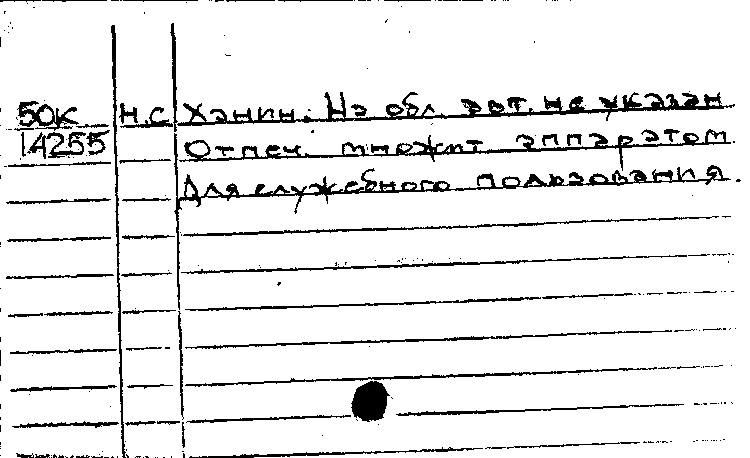 50К Н.С Ханин. На обл. авт. не указан
14255 Отпеч. множит аппаратом
Для служебного пользования.